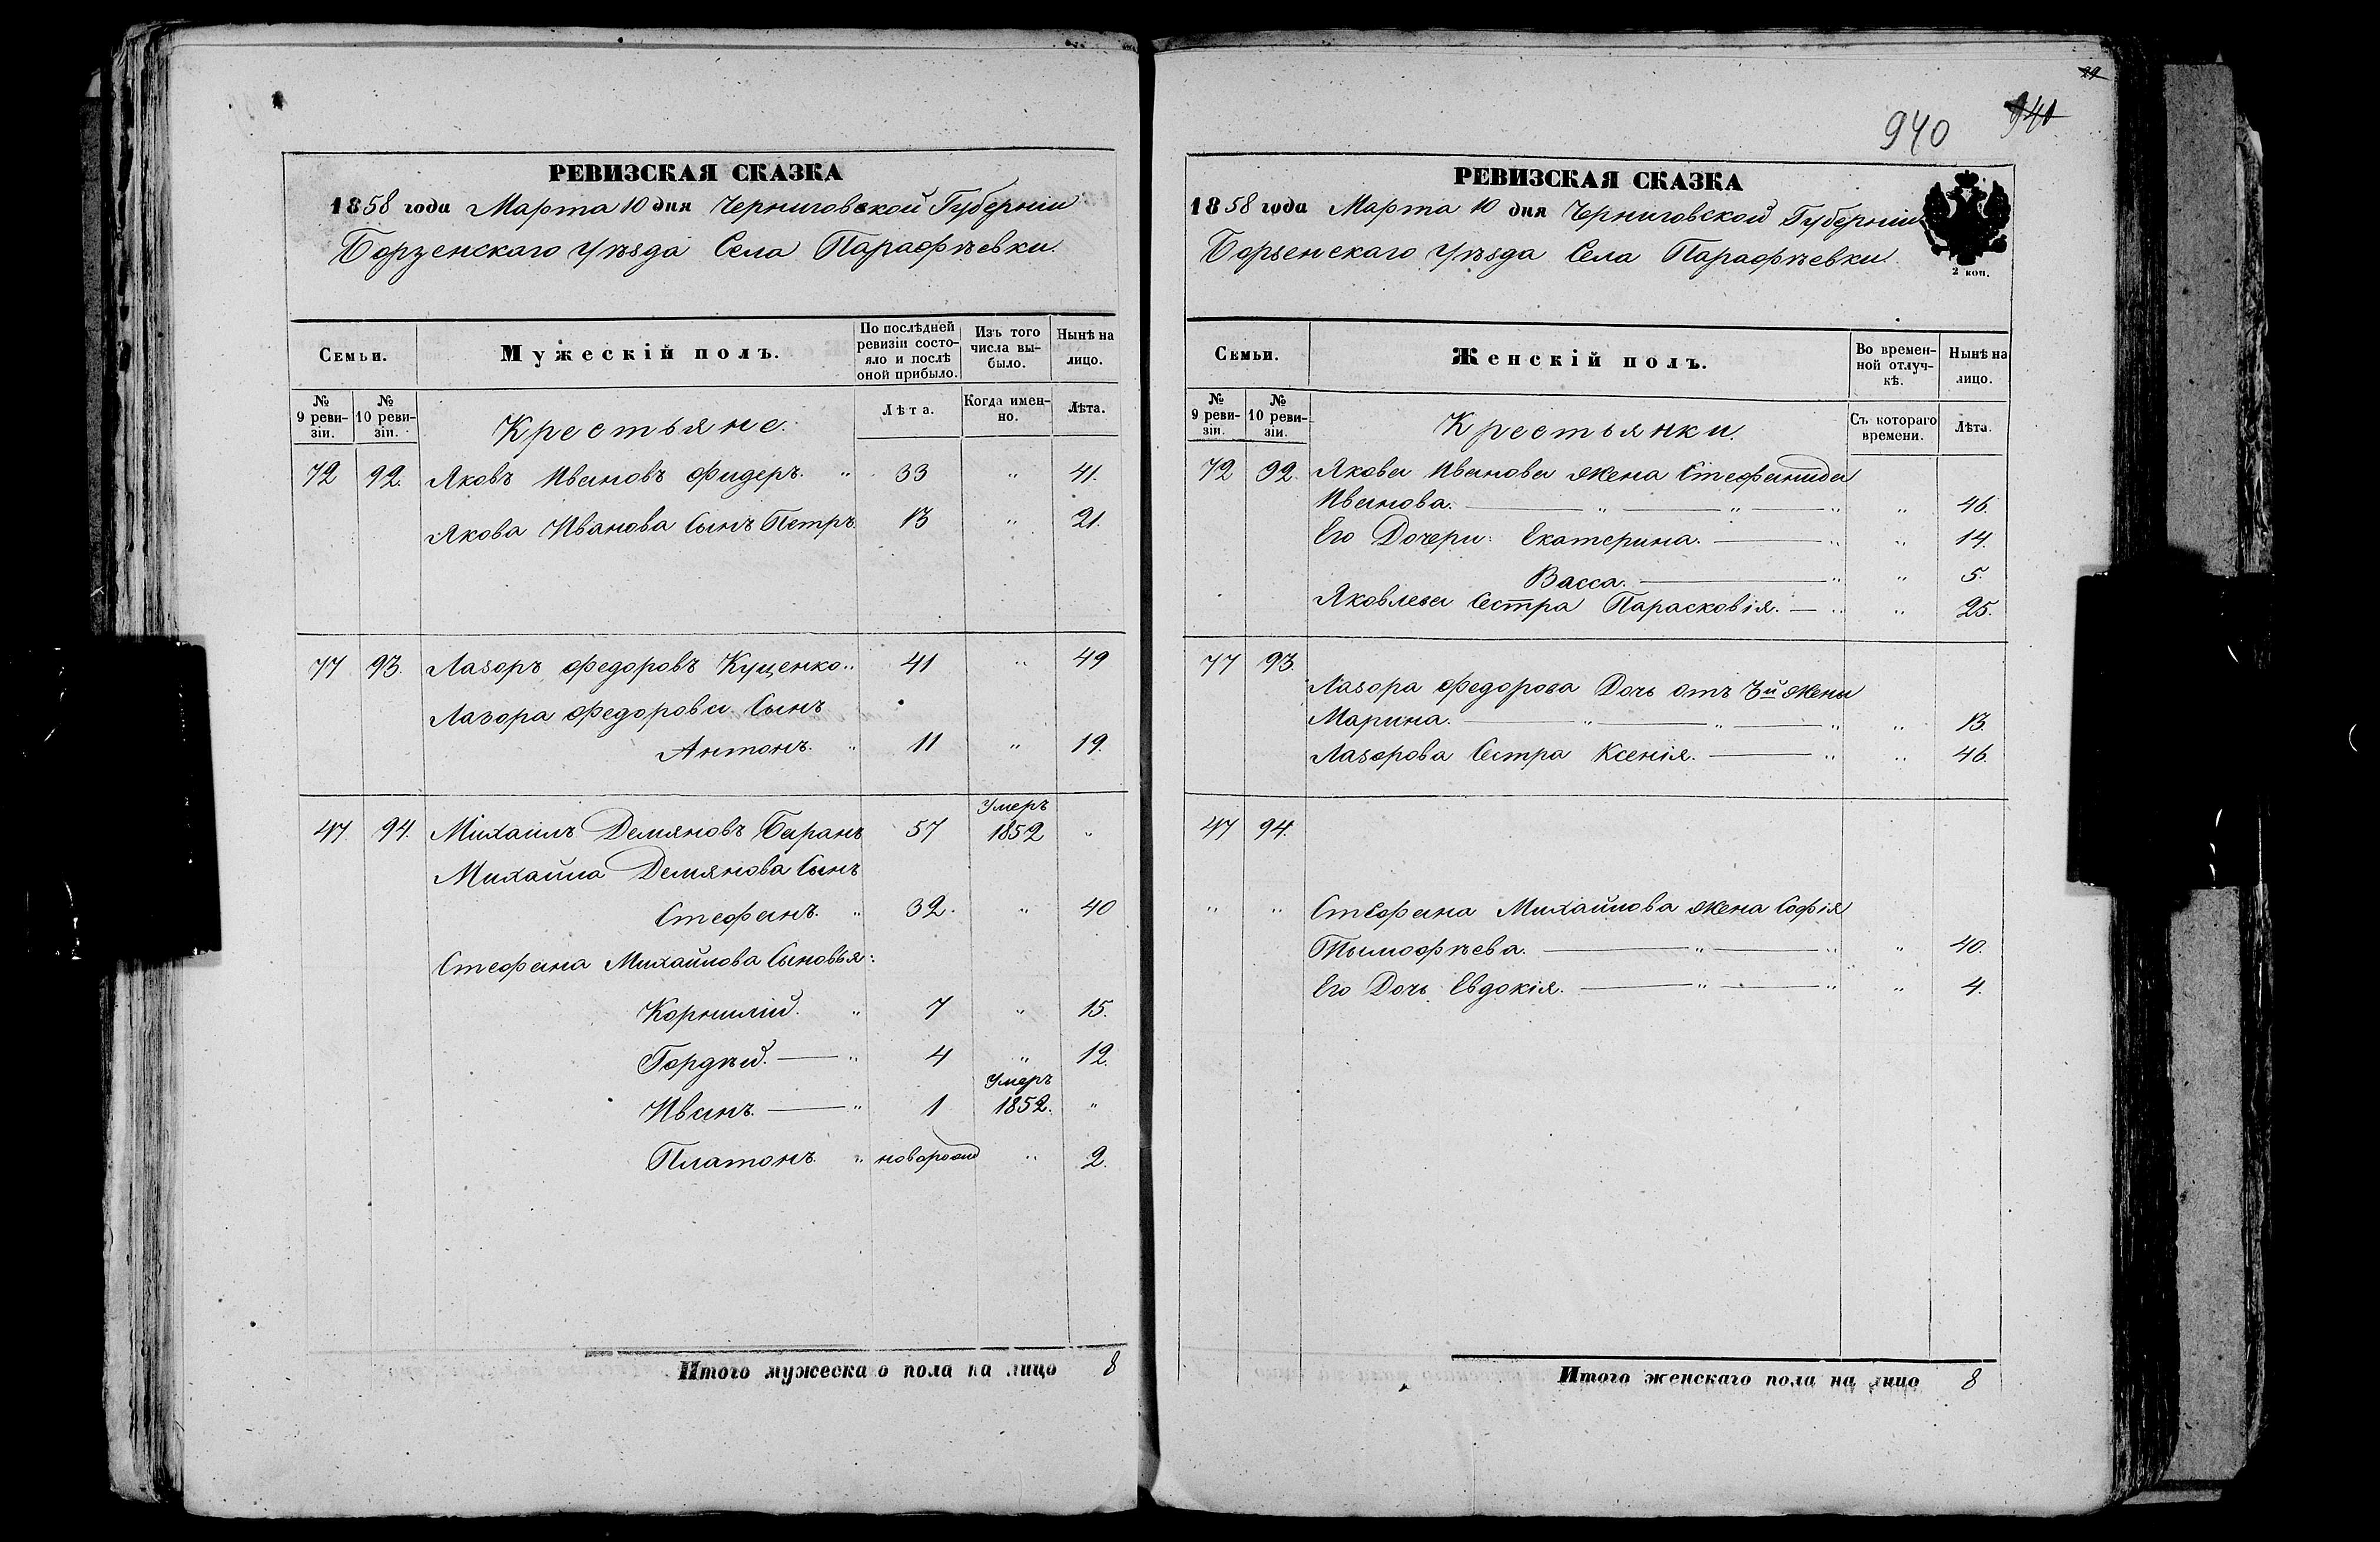 РЕВИЗСКАЯ СКАЗКА
1858 года Марта 10 дня Черниговской Губерніи
Борзенскаго Уѣзда Села Парафѣевки.
Семьи.
Мужескій полъ.
По послѣдней ревизіи состояло и послѣ оной прибыло.
Изъ того числа выбыло.
Нынѣ на лицо.
№ 9 ревизіи.
№ 10 ревизіи.
Крестьяне.
Лѣта.
Когда именно.
Лѣта.
72 92. Яковъ Ивановъ Фидеръ. " 33 " 41.
Якова Иванова Сынъ Петръ 13 " 21.
77 93. Лазоръ Федоровъ Куценко " 41 " 49
Лазора Федорова Сынъ
Антонъ. " 11 " 19.
Умеръ
47. 94. Михаилъ Демяновъ Баранъ 57 1852 "
Михаила Демянова Сынъ
Стефанъ. " 32. " 40
Стефана Михайлова Сыновья:
Корнилій. " 7 " 15.
Гордѣй. — " 4 " 12.
Умеръ
Иванъ. — " 1 1852. "
Платонъ. " новорожд " 2.
Итого мужеска о пола на лицо 8
29
940 941
РЕВИЗСКАЯ СКАЗКА
1858 года Марта 10 дня Черниговской Губерніи
Борзенскаго Уѣзда Села Парафѣевки.
2 коп.
Семьи.
Женскій полъ.
Во временной отлучкѣ.
Нынѣ на лицо.
№ 9 ревизіи.
№ 10 ревизіи.
Крестьянки.
Съ котораго времени.
Лѣта.
72 92. Якова Иванова жена Стефанида
Иванова. — " — " — " " 46.
Его Дочери: Екатерина. — " " 14.
Васса. — " " 5.
Яковлева Сестра Парасковія. — " " 25.
77 93.
Лазора Федорова Дочь отъ 3й жены
Марина. — " — " — " " 13.
Лазорова Сестра Ксенія. — " " 46.
47 94.
" " Стефана Михайлова жена Софія
Тымофѣева. — " — " " 40.
Его Дочь Евдокія. — " — " " 4.
Итого женскаго пола на лицо 8